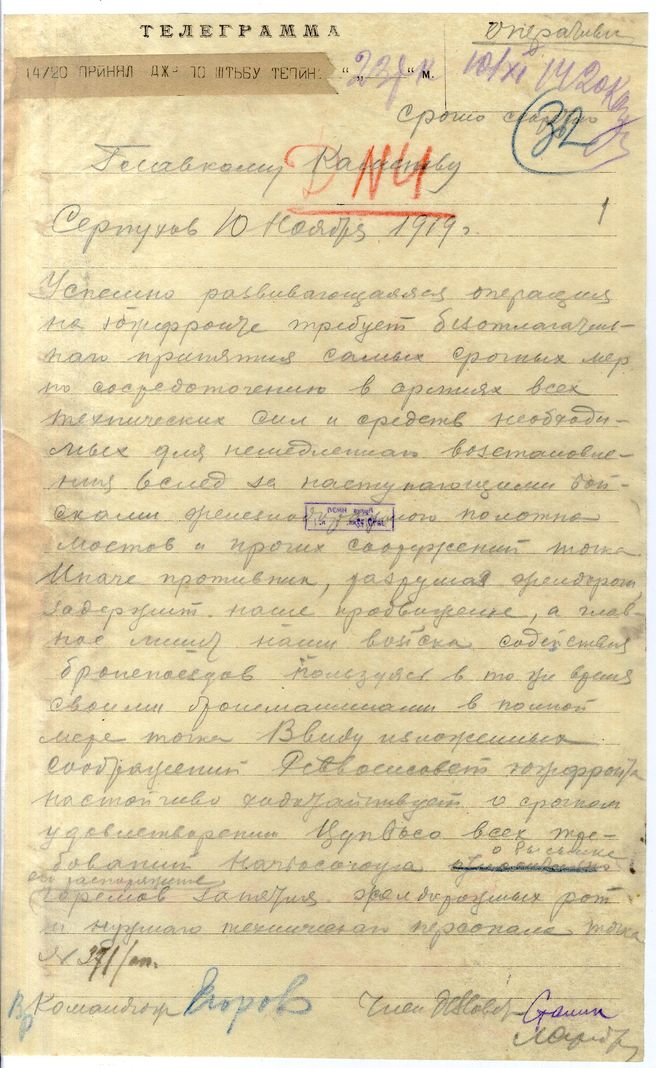 ТЕЛЕГРАММА
Оперативн
14/20 ПРИНЯЛ ДЖ 10 ШТЬБУ
"м.
10/XI 1420
срочно
32
Главкому Каменеву
Серпухов 10 Ноября 1919 г.
1
Успешно развивающаяся операция
на южфронте требует безотлагатель-
наго принятия самых срочных мер
по сосредоточению в армиях всех
технических сил и средств необходи-
мых для немедленнаго возстановле-
ния вслед за наступающими вой-
сками железнодорожного полотна
мостов и прочих сооружений точка
Иначе противник, разрушая желдороги,
задержит наше продвижение, а глав-
ное лишит наши войска содействия
бронепоездов пользуясь в то же время
своими бронемашинами в полной
мере точка Ввиду изложенных
соображений Реввоенсовет южфронта
настойчиво ходатайствует о срочном
удовлетворении Цупвосо всех тре-
бований
о высылке
в распоряжение
желдорожных рот
и нужного техническаго персонала точка
№ 371/оп.
Вр Командюж Егоров
Член Сталин